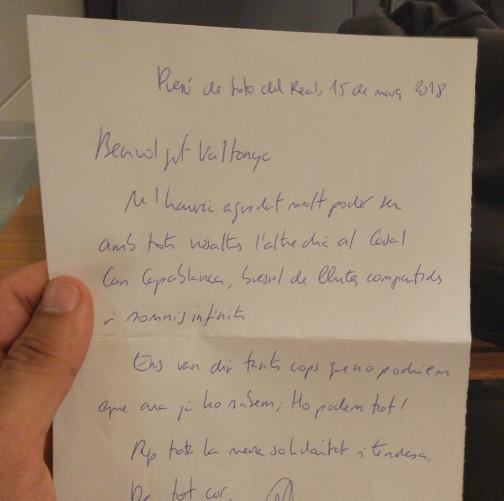 Presó de Soto del Real, 15 de març 2018
Benvolgut Valtonyc
M'hauria agradat molt poder ser
amb tots vosaltres l'altre dia al Casal
Can Capablanca, bressol de lluites compartides
i somnis infinits
Ens van dir tants cops que no podríem
que ara ja ho sabem; Ho podem tot!
Rep tota la meva solidaritat i tendresa
De tot cor,